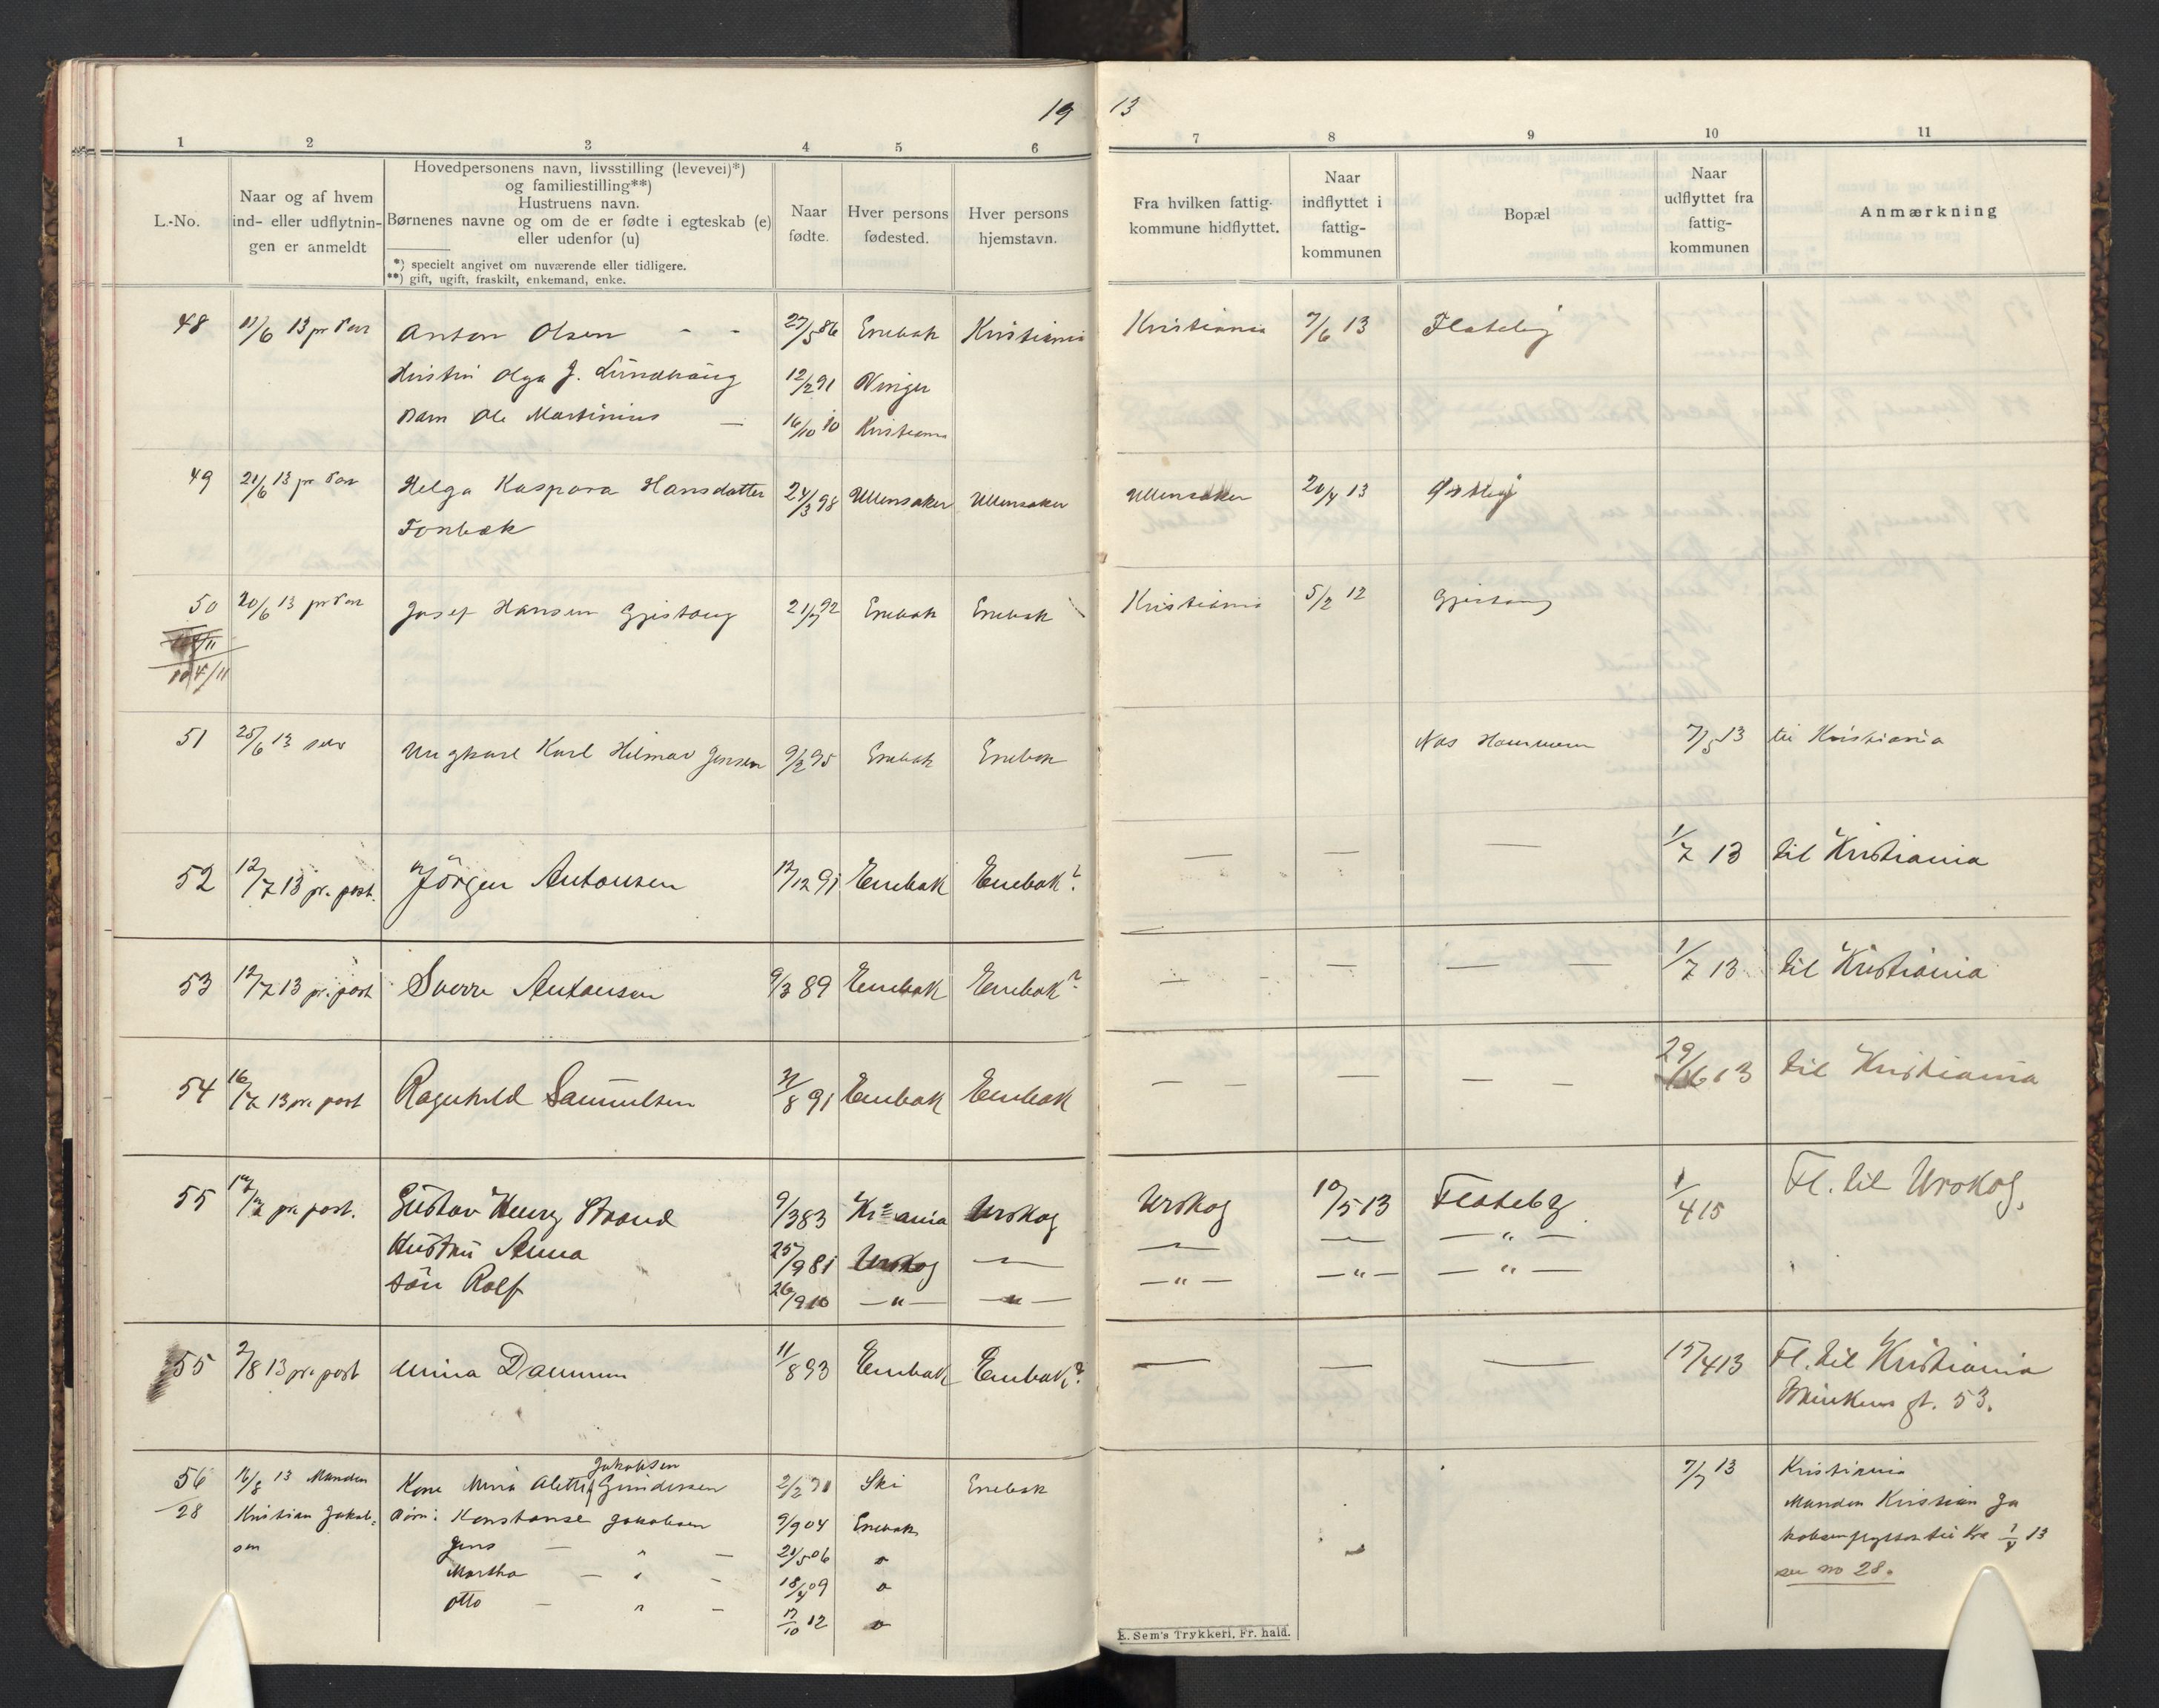 19 13
1 2 3 4 5 6 7 8 9 10 11
L.-No.
Naar og af hvem
ind- eller udflytnin-
gen er anmeldt
Hovedpersonens navn, livsstilling (levevei)*)
og familiestilling**)
Hustruens navn.
Børnenes navne og om de er fødte i egteskab (e)
eller udenfor (u)
*) specielt angivet om nuværende eller tidligere.
**) gift, ugift, fraskilt, enkemand, enke.
Naar
fødte.
Hver persons
fødested.
Hver persons
hjemstavn.
Fra hvilken fattig-
kommune hidflyttet.
Naar
indflyttet i
fattig-
kommunen
Bopæl
Naar
udflyttet fra
fattig-
kommunen
Anmærkning
48 11/6 13 pr Post Anton Olsen - - 27/5 86 Enebak Kristiania Kristiania 7/6 13 Flateby
Hustru Olga J. 12/2 91 Vinger
Barn Ole Martinius — 16/10 10 Kristiania
49 21/6 13 pr Post Helga Kaspara Hansdatter 24/3 98 Ullensaker Ullensaker Ullensaker 20/4 13
Fonbæk
50 20/6 13 pr Post Josef Hansen Gjestang 21/7 92 Enebak Enebak Kristiania 5/2 12 Gjestang
51 25/6 13 selv Ungkarl Karl Hilmar Jensen 9/2 95 Enebak Enebak Næs Hammeren 7/5 13 til Kristiania
52 12/7 13 pr. post. Jörgen Antonsen 13/12 91 Enebak Enebak? — — — 1/7 13 til Kristiania
53 12/7 13 pr. post Sverre Antonsen 9/3 89 Enebak Enebak? — — — — 1/7 13 til Kristiania
54 16/7 13 pr. post Ragnhild Samuelsen 31/8 91 Enebak Enebak — — — — — 29/6 13 til Kristiania
55 17/7 pr. post. Gustav Henry Strand 9/3 83 Kr=ania Urskog Urskog 10/5 13 Flateby 1/4 15 Fl. til Urskog.
Hustru Anna 25/9 81 Urskog — — — — " —
sön Rolf 26/9 10 — " — — " — — " — — " — — " —
55 2/8 13 pr. post Anna Dammen 11/8 93 Enebak Enebak? — — — 15/4 13 Fl. til Kristiania
gt. 53.
56 16/8 13 Manden Kone Mina Alette Jakobsen Gundersen 2/2 71 Ski Enebak 7/7 13 Kristiania
28 Kristian Jakob= Börn: Konstanse Jakobsen 9/9 04 Enebak Manden Kristian Ja
sen Jens — " — 21/5 06 o kobsen flyttet til Kra 1/4 13
Martha — " — 18/4 09 o se no 28.
Otto — " — 17/10 12 o
E. Sem's Trykkeri, Fr. hald.